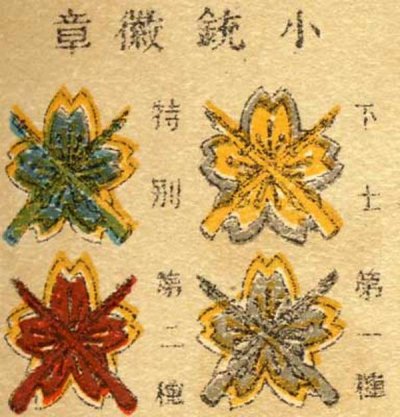 小銃徽章
下士
特別
第一種
第二種